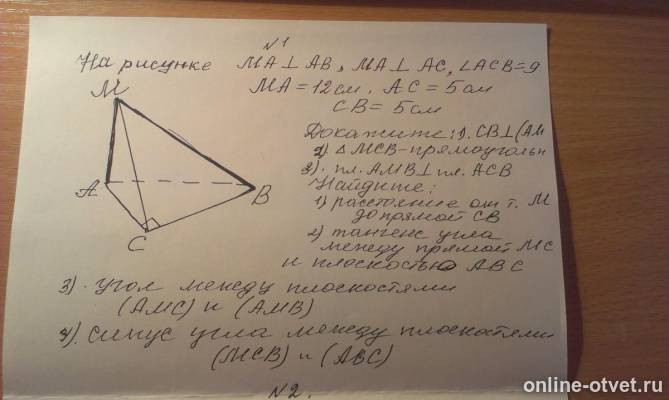 №1
На рисунке MA ⊥ AB, MA ⊥ AC, ∠ACB = 9
MA = 12 см, AC = 5 см
CB = 5 см
M
A
B
C
Докажите: 1). CB ⊥ (AM
2) △ MCB - прямоугольн
3). пл. AMB ⊥ пл. ACB
Найдите:
1) расстояние от т. M
до прямой CB
2) тангенс угла
между прямой MC
и плоскостью ABC
3). угол между плоскостями
(AMC) и (AMB)
4). синус угла между плоскостями
(MCB) и (ABC)
№2.
online-otvet.ru